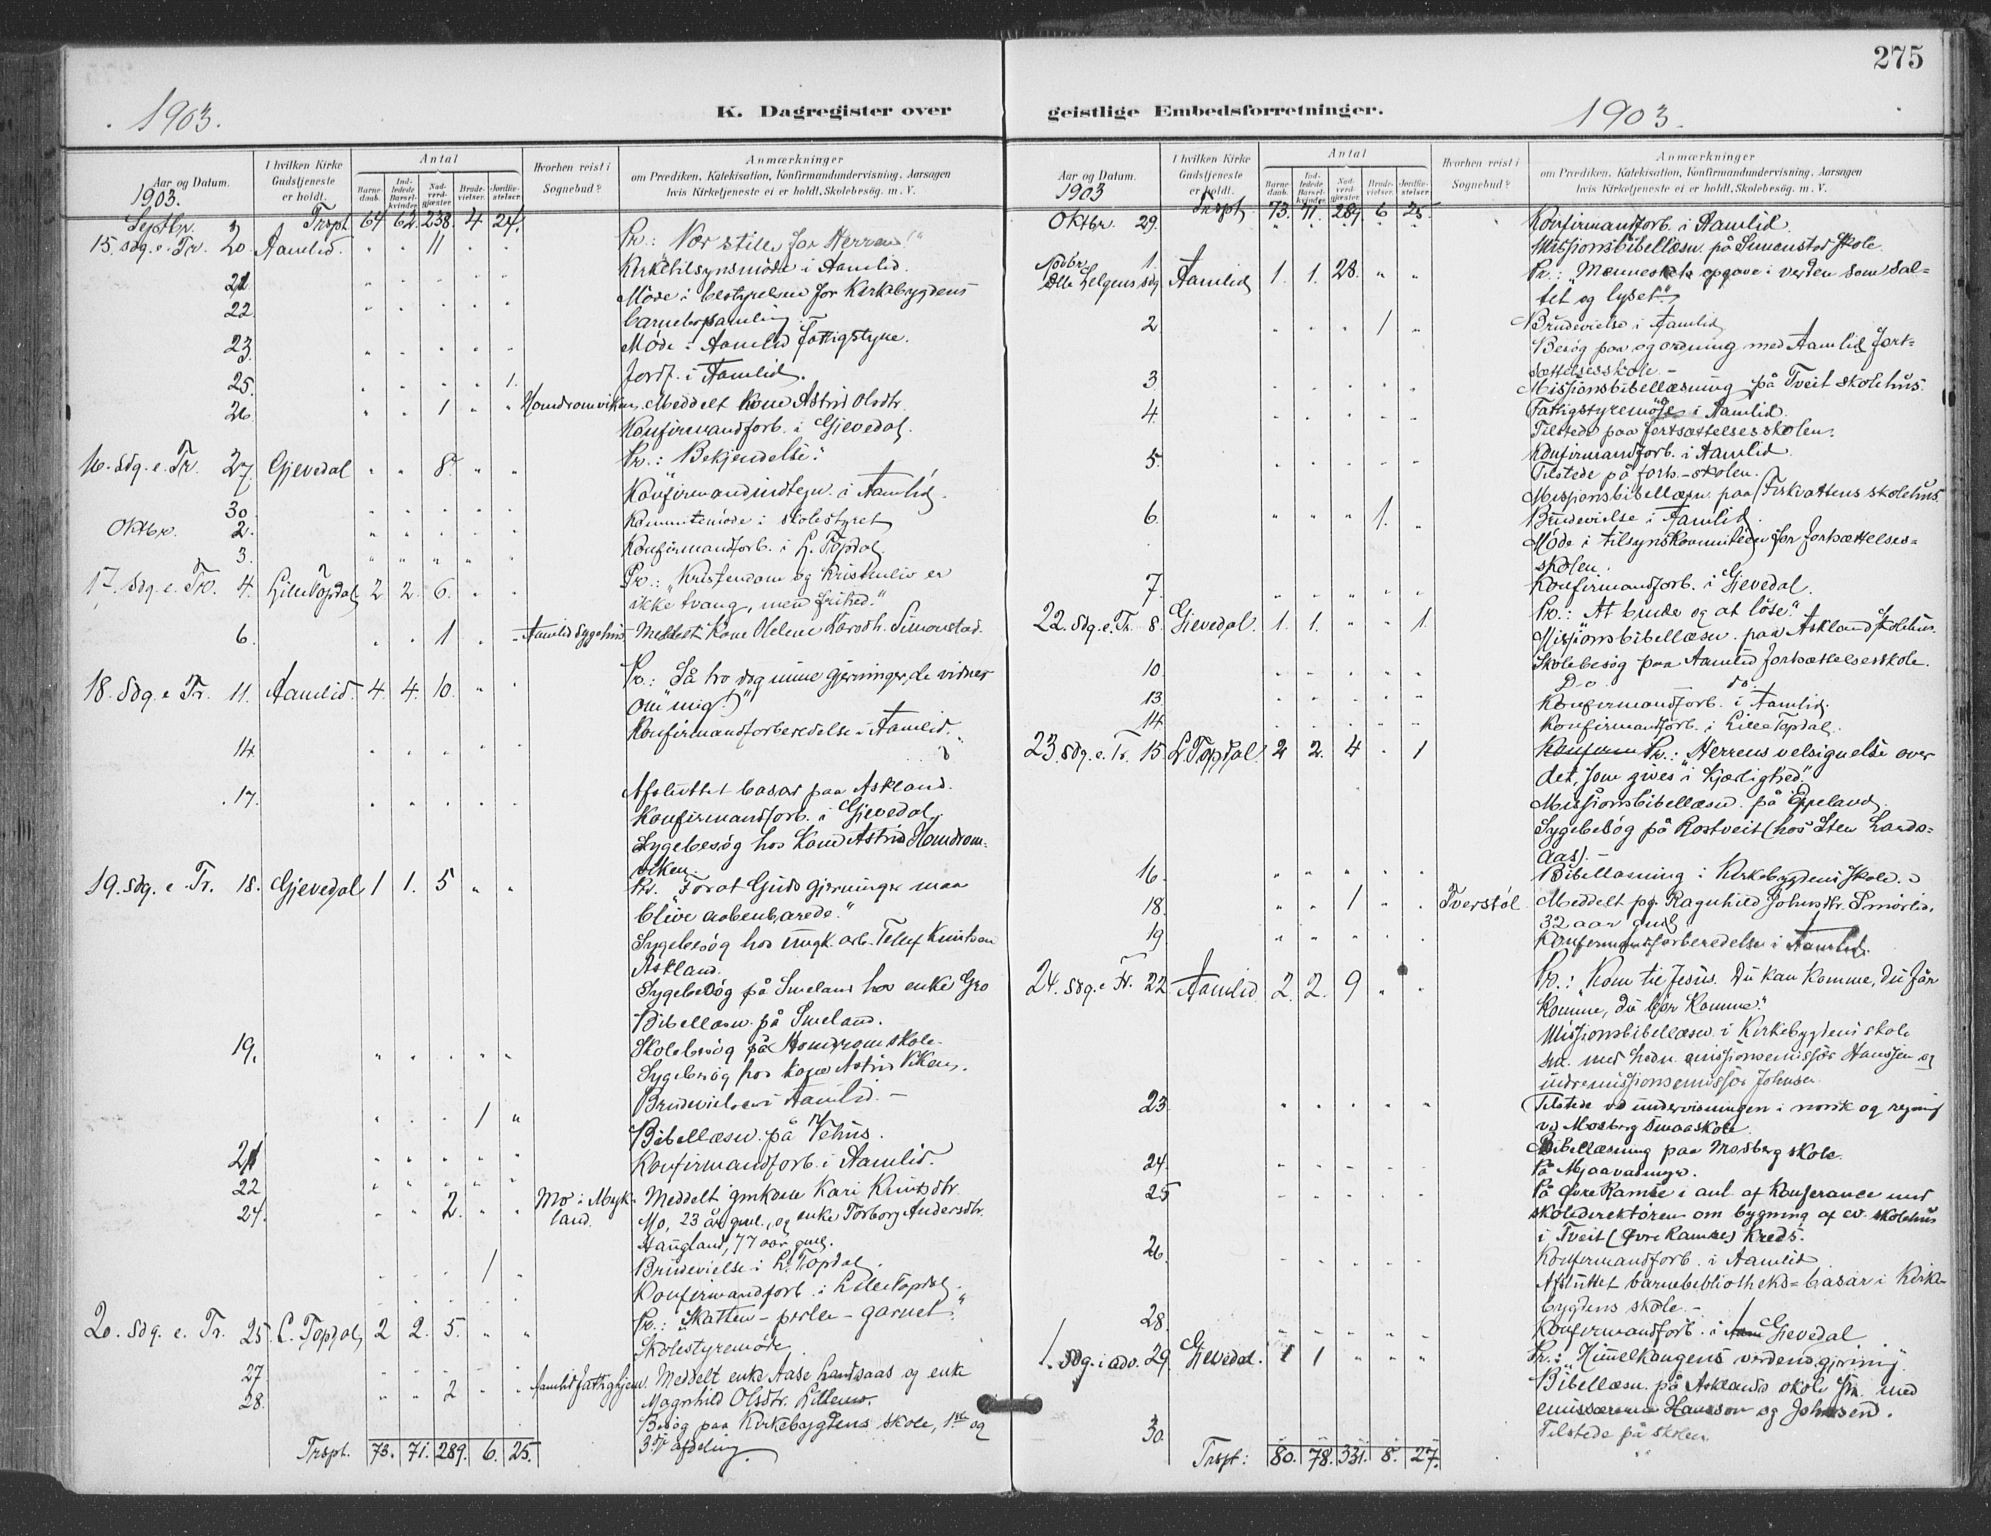 275
1903.
K. Dagregister over
geistlige Embedsforretninger.
1903.
Aar og Datum.
I hvilken Kirke Gudstjeneste er holdt.
Antal
Barne-daab.
Ind-ledede Barsel-kvinder.
Nad-verd-gjæster.
Brude-vielser.
Jordfæ-stelser.
Hvorhen reist i Sognebud?
Anmærkninger
om Prædiken, Katekisation, Konfirmandundervisning, Aarsagen
hvis Kirketjeneste ei er holdt, Skolebesøg. m. V.
1903.
Septbr. Trspt. 64 62 238 4 24.
15. Sdg. e. Tr. 20. Aamlid. " " 11 " " Pr.: "Vær stille for Herren!"
Kirketilsynsmøde i Aamlid.
21 Møde i bestyrelsen for Kirkebygdens
22 barnebogsamling.
23. Møde i Aamlid Fattigstyre.
25. 1. Jordf. i Aamlid.
26 1 Meddelt Kone Astrid Olsdtr.
Konfirmandforb. i Gjevedal.
16. Sdg. e. Tr. 27. Gjevedal " " 8. " " Pr.: Bekjendelse.
Konfirmandindtegn. i Aamlid.
30. Kommitemøde i skolestyret
Oktbr. 2. Konfirmandforb. i L. Topdal.
3.
17. Sdg. e. Tr. 4. LilleTopdal 2 2. 6. " " Pr.: "Kristendom og Kristenliv er
ikke tvang, men frihed."
6. " " 1 " " Aamlid Sygehus Meddelt Kone Helene Larsdtr. Simonstad.
18. Sdg. e Tr. 11. Aamlid. 4. 4. 10. " " Pr.: "Så tro dog mine gjerninger, de vidner
om mig!"
14. Konfirmandforberedelse i Aamlid.
17. Afsluttet basar paa Askland.
Konfirmandforb. i Gjevedal.
Sygebesøg hos Kone Astrid Homdrom-
viken.
19. Sdg. e. Tr. 18. Gjevedal 1 1. 5 " " Pr. "Forat Guds gjerninger maa
blive aabenbarede."
Sygebesøg hos ungk. arb. Tellef Knutsen
Askland.
Sygebesøg på Smeland hos enke Gro
Bibellæsn. på Smeland.
19. Skolebesøg på Homdrom skole.
Sygebesøg hos Kone Astrid Viken.
1 " Brudevielse i Aamlid. –
Bibellæsn. på Vehus.
21 Konfirmandforb. i Aamlid.
22
24. 2. Mo i Myk-
land. Meddelt gmkone Kari Knutsdtr.
Mo, 23 år gml., og enke Torborg Andersdtr.
Haugland, 77 aar gml.
1 Brudevielse i L. Topdal.
Konfirmandforb. i LilleTopdal.
20. Sdg. e. Tr. 25. L. Topdal, 2 2. 5. " " Pr.: "Skatten – perlen – garnet."
Skolestyremøde.
27
28. 2 Aamlid fattighjem. Meddelt enke Aase Landsaas og enke
Magnhild Olsdtr.
Besøg paa Kirkebygdens skole, 1ste og
3die afdeling.
Trspt. 73. 71. 289. 6. 25.
Aar og Datum.
I hvilken Kirke Gudstjeneste er holdt.
Antal
Barne-daab.
Ind-ledede Barsel-kvinder.
Nad-verd-gjæster.
Brude-vielser.
Jordfæ-stelser.
Hvorhen reist i Sognebud?
Anmærkninger
om Prædiken, Katekisation, Konfirmandundervisning, Aarsagen
hvis Kirketjeneste ei er holdt, Skolebesøg. m. V.
1903
Trspt. 73. 71. 289 6 25.
Oktbr 29. Konfirmandforb. i Aamlid.
Missionsbibellæsn. på Simonstad Skole.
Novbr. 1.
Alle Helgens sdg Aamlid 1. 1. 28. " " Pr.: "Menneskets opgave i verden som sal-
tet og lyset".
2 1 Brudevielse i Aamlid
Besøg paa og ordning med Aamlid fort-
sættelsesskole –
3 Missionsbibellæsning på Tveit skolehus.
4. Fattigstyremøde i Aamlid.
Tilstede paa fortsættelsesskolen.
5. Konfirmandforb. i Aamlid
Tilstede på forts.-skolen.
Missionsbibellæsn. paa Fiskvattens skolehus.
6. 1. Brudevielse i Aamlid.
Møde i tilsynskommiteen for fortsættelses=
skolen.
7. Konfirmandforb. i Gjevedal.
22. Sdg. e. Tr. 8. Gjevedal. 1. 1. " " 1 Pr.: "At binde og at løse".
Missionsbibellæsn. paa Askland skolehus.
10. Skolebesøg paa Aamlid fortsættelsesskole.
13 Do. do.
14 Konfirmandforb. i Aamlid.
Konfirmandforb. i LilleTopdal.
23. Sdg. e. Tr. 15. L. Topdal. 2 2. 4 " 1 Konfirm Pr.: "Herrens velsignelse over
det, som gives i kjærlighed."
Missionsbibellæsn. på Eppeland.
Sygebesøg på Rostveit (hos Sten Lands-
aas). –
16. Bibellæsning i Kirkebygdens Skole.
18. 1 Tverstøl Meddelt Ragnhild Johnsdtr. Smørli,
32 aar gml.
19 Konfirmandforberedelse i Aamlid.
24. Sdg. e Tr. 22 Aamlid. 2. 2. 9 " " Pr.: "Kom til Jesus. Du kan komme, du får
komme, du bør komme".
Missionsbibellæsn. i Kirkebygdens skole
sm. med hedn. missionsemissær Hanssen og
indremissionsemissær Johnsen.
23. Tilstede vd undervisningen i norsk og regning
vd Mosberg Smaaskole
24. Bibellæsning paa Mosberg skole.
På Mjaavatn
25 På Øvre Ramse i anl. af konferance med
skoledirektøren om bygning af skolehus
i Tveit (Øvre Ramse) Kreds.
26. Konfirmandforb. i Aamlid.
Afsluttet barnebibliotheks=basar i Kirke-
bygdens skole. –
28. Konfirmandforb. i Aam Gjevedal
1. Sdg. i adv. 29. Gjevedal. 1 1 " " " Pr.: "Himmelkongens verdensgjerning".
Bibellæsn. på Asklands skole sm. med
emissærerne Hanssen og Johnsen.
30. Tilstede på skolen.
Trspt: 80. 78. 331. 8. 27.